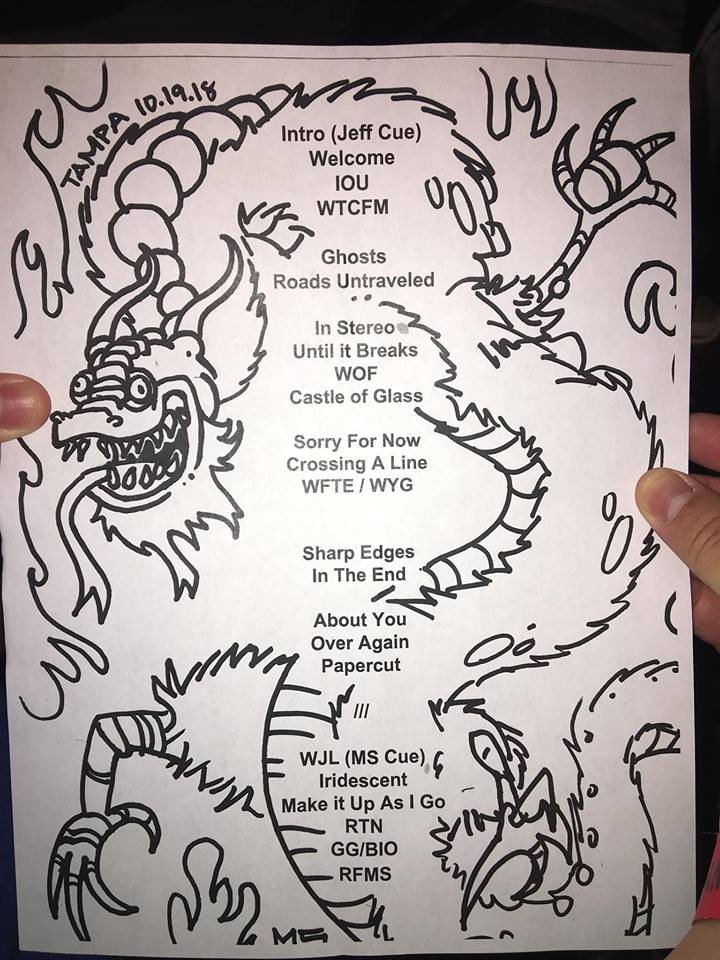 TAMPA 10.19.18
Intro (Jeff Cue)
Welcome
IOU
WTCFM
Ghosts
Roads Untraveled
In Stereo
Until it Breaks
WOF
Castle of Glass
Sorry For Now
Crossing A Line
WFTE / WYG
Sharp Edges
In The End
About You
Over Again
Papercut
///
WJL (MS Cue)
Iridescent
Make it Up As I Go
RTN
GG/BIO
RFMS